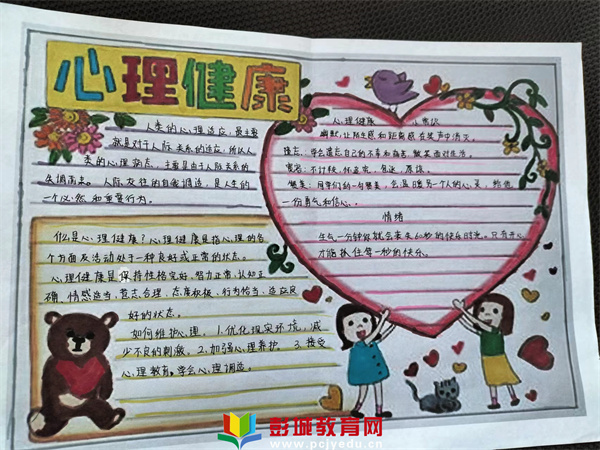 心理健康
人类的心理适应，最主要
就是对于人际关系的适应，所以人
类的心理病态，主要是由于人际关系的
失调而来。人际交往的自我调适，是人生的
一个必然和重要行为。
什么是心理健康？心理健康是指心理的各
个方面及活动处于一种良好或正常的状态。
心理健康是保持性格完好、智力正常、认知正
确、情感适当、意志合理、态度积极、行为恰当、适应良
好的状态。
如何维护心理。1.优化现实环境，减
少不良的刺激。2.加强心理养护。3.接受
心理教育，学会心理调适。
心理健康 小常识
幽默，让陌生感和距离感在笑声中消灭。
遗忘，学会遗忘自己的不幸和痛苦，微笑面对生活。
宽容：不计较，怀孟宽、容进、原谅。
赞美：同学们的一句赞美，会温暖另一个人的心灵，给他
一份勇气和信心。
情绪
生气一分钟你就会丧失60秒的快乐时光。只有开心
才能抓住每一秒的快乐。
彭城教育网
www.pcjyedu.cn